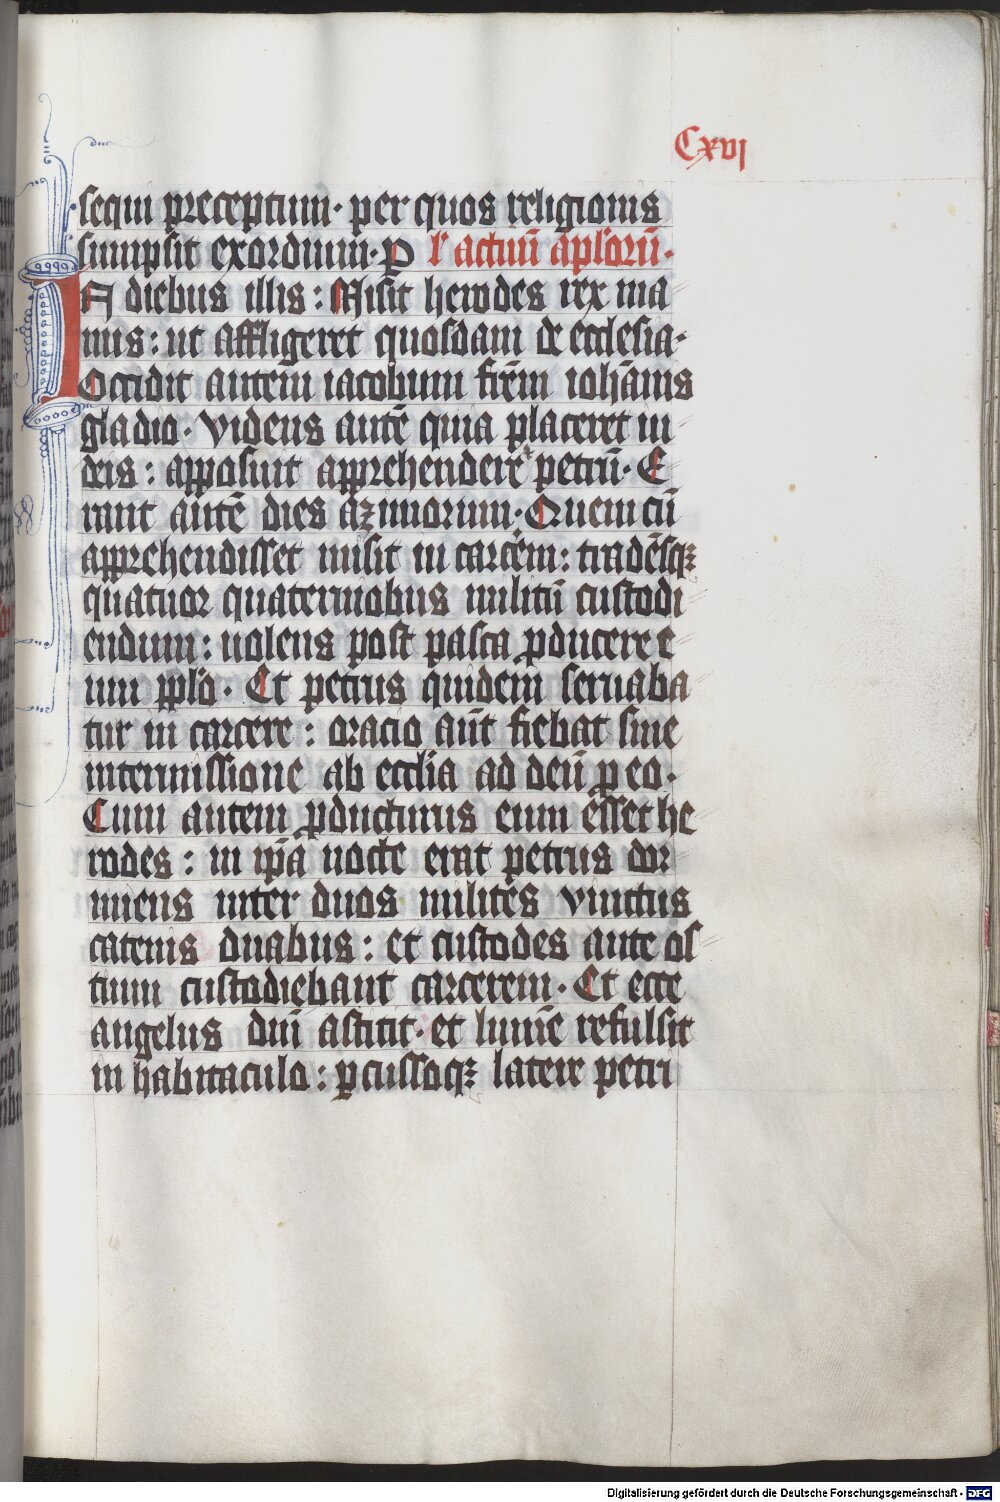 Cxvj
sequi preceptum · per quos religionis
sumpsit exordium · P l' actuū aplīorū ·
In diebus illis : Misit herodes rex ma
nus : ut affligeret quosdam de ecclesia ·
Occidit autem iacobum frēm iohānis
gladio · videns autē quia placeret iu
deis : apposuit apprehendere petrū · E
rant autē dies azimorum · Quem cū
apprehendisset misit in carcēm : tradēsqꝫ
quatuor quaterniobus militū custodi
endum : uolens post pasca ꝓducere e
um pplō · Et petrus quidem seruaba
tur in carcere : oracio aūt fiebat sine
intermissione ab eccl̄ia ad deū ꝓ eo ·
Cum autem ꝓducturus eum esset he
rodes : in ip̄a nocte erat petrus dor
miens inter duos milites vinctus
catenis duabus : et custodes ante os
tium custodiebant carcerem · Et ecce
angelus dn̄i astitit · et lumē refulsit
in habitaculo : ꝑcussoqꝫ latere petri
Digitalisierung gefördert durch die Deutsche Forschungsgemeinschaft - DFG